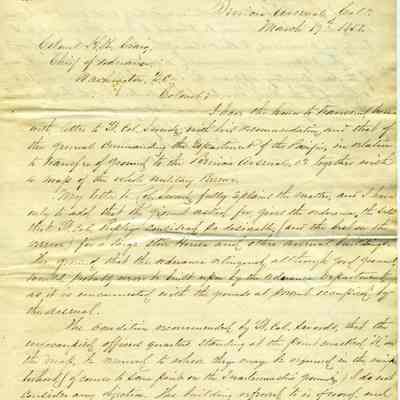 Arsenal, Cal.
March 19th 185
Colonel H. K. Craig,
Chief of Ordnance
Washington, D.C.
Colonel:
I have the honor to transmit here
with letter to Lt. Col. with his recommendation and that of
the General Commanding the Department of the Pacific, in relation
to transfer of ground to the Arsenal, together with
a map of the whole Military Reserve.
My letter to fully explains the matter, and I have
only to add that the ground asked for, gives the ordnance, the
that Lt. Col. considered so desirable, (and the best on the
) for a large Store House and other arsenal buildings.
The ground that the ordnance relinquish, although good ground,
would probably never be built upon by the Ordnance Department,
as it is unconnected with the grounds at present occupied by
the Arsenal.
The condition recommended by Lt. Col. that the
unoccupied officers quarters standing at the point marked on
the map, be moved to where they may be required in the
(of course to some point on the Quartermaster's ground,) I do not
consider any objection. The building referred to is of wood, and